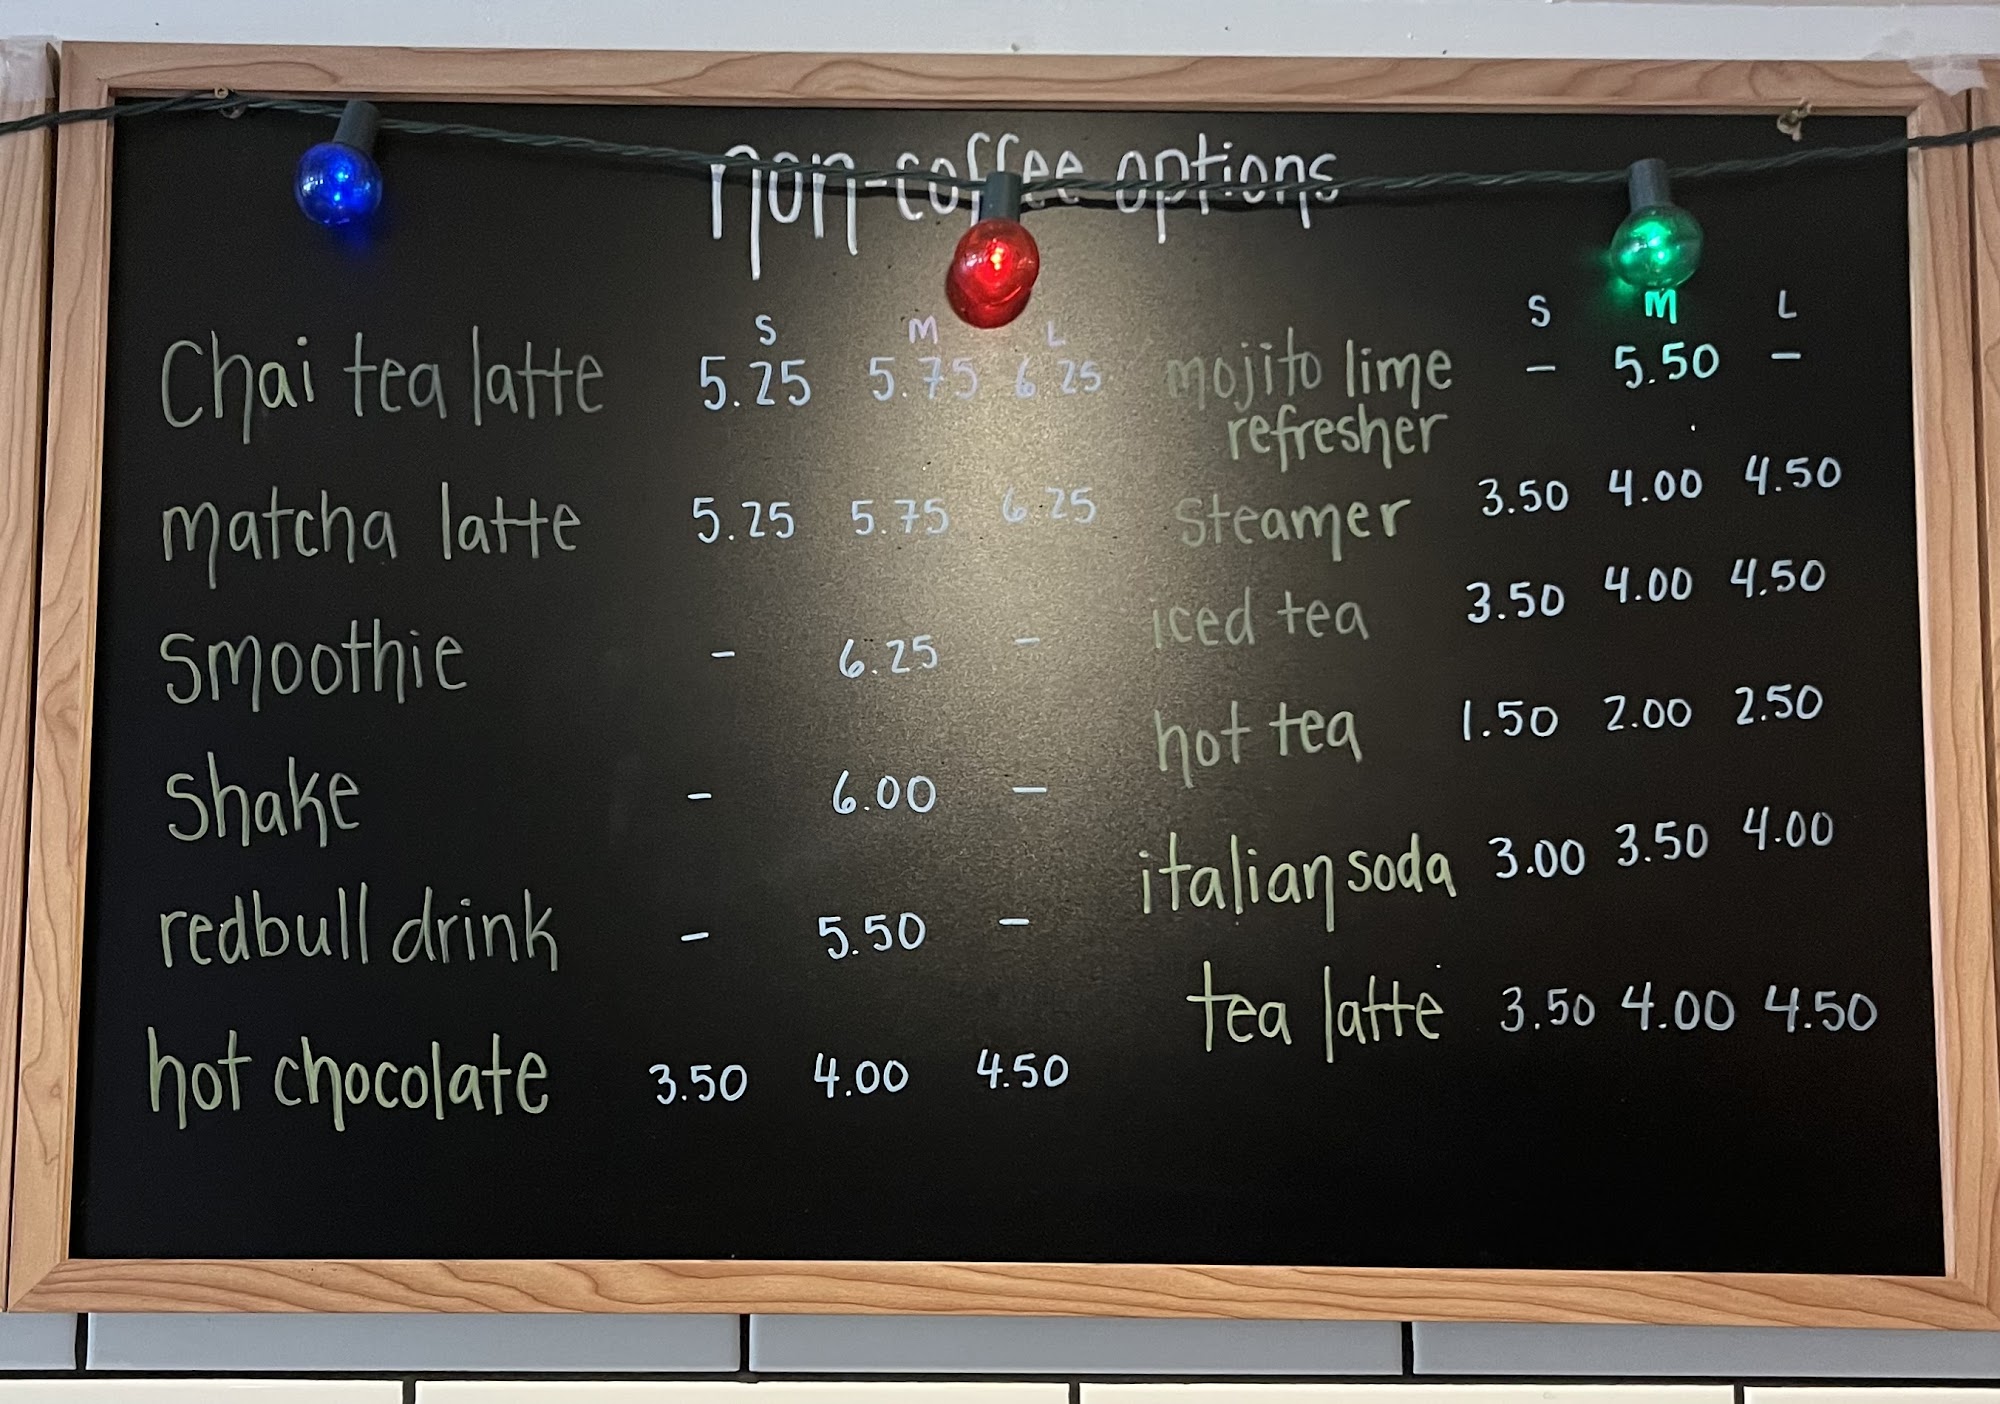 non-coffee options
S M L
Chai tea latte 5.25 5.75 6.25
matcha latte 5.25 5.75 6.25
smoothie - 6.25 -
shake - 6.00 -
redbull drink - 5.50 -
hot chocolate 3.50 4.00 4.50
S M L
mojito lime - 5.50 -
refresher
steamer 3.50 4.00 4.50
iced tea 3.50 4.00 4.50
hot tea 1.50 2.00 2.50
italian soda 3.00 3.50 4.00
tea latte 3.50 4.00 4.50